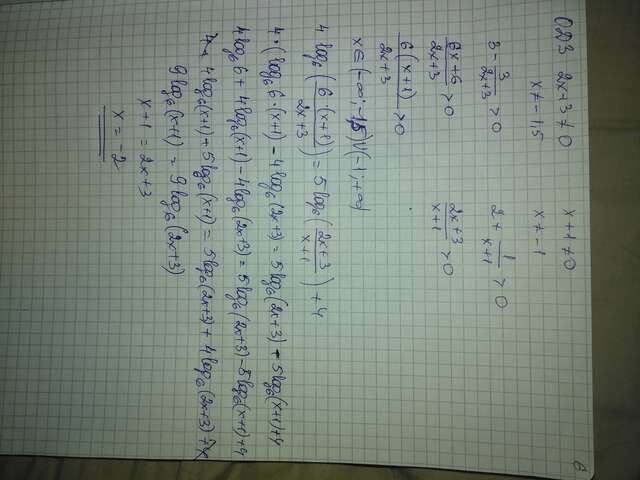 6
ОДЗ 2x+3≠0 x+1≠0
x≠-1,5 x≠-1
3 - 3/(2x+3) > 0 2 + 1/(x+1) > 0
(6x+6)/(2x+3) > 0 (2x+3)/(x+1) > 0
6(x+1)/(2x+3) > 0
x∈(-∞;-1,5)∪(-1;+∞)
4 log₆(6(x+1)/(2x+3)) = 5 log₆((2x+3)/(x+1)) + 4
4·(log₆6·(x+1) - 4 log₆(2x+3) = 5 log₆(2x+3) - 5 log₆(x+1)+4
4 log₆6 + 4 log₆(x+1) - 4 log₆(2x+3) = 5 log₆(2x+3) - 5 log₆(x+1)+4
4 log₆(x+1) + 5 log₆(x+1) = 5 log₆(2x+3) + 4 log₆(2x+3)
9 log₆(x+1) = 9 log₆(2x+3)
x+1 = 2x+3
x = -2